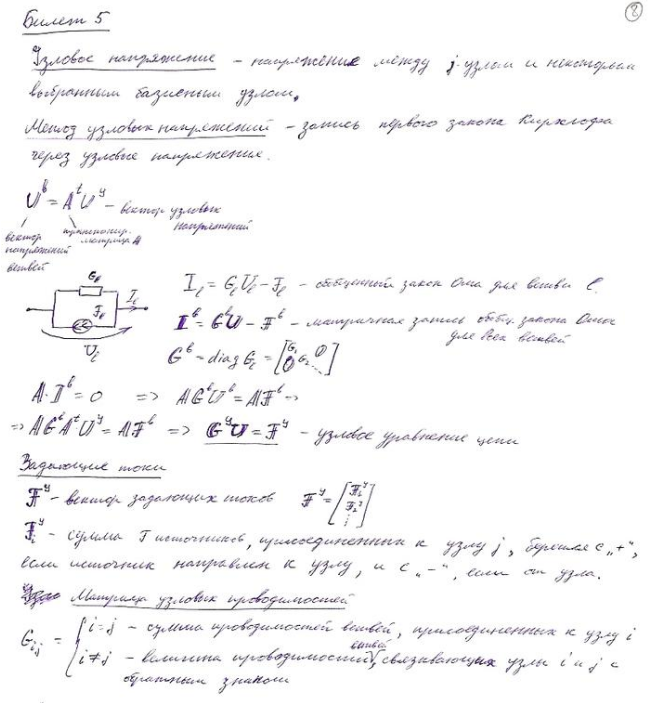 2
Билет 5
Узловое напряжение – напряжение между j-узлом и некоторым
выбранным базисным узлом.
Метод узловых напряжений – запись первого закона Кирхгофа
через узловые напряжения.
Uᵇ = AᵗUʸ – вектор узловых
напряжений
вектор напряжений ветвей
транспонир. матрица A
Gₗ
Fₗ
Iₗ
Uₗ
Iₗ = GₗUₗ – Fₗ – обобщенный закон Ома для ветви l.
Iᵇ = GᵇU – Fᵇ – матричная запись обобщ. закона Ома
для всех ветвей
Gᵇ = diag Gₗ = [G₁ 0 0 G₂ ...]
A·Iᵇ = 0 => AGᵇUᵇ = AFᵇ =>
=> AGᵇAᵗUʸ = AFᵇ => GʸU = Fʸ – узловое уравнение цепи
Задающие токи
Fʸ – вектор задающих токов Fʸ = [F₁ʸ F₂ʸ ⋮]
– сумма F источников, присоединенных к узлу j, берется с „+“,
если источник направлен к узлу, и с „–“, если от узла.
Матрица узловых проводимостей
Gᵢⱼ = { i=j – сумма проводимостей ветвей, присоединенных к узлу i
i≠j – величина проводимости ветвей, связывающих узлы i и j с
обратным знаком